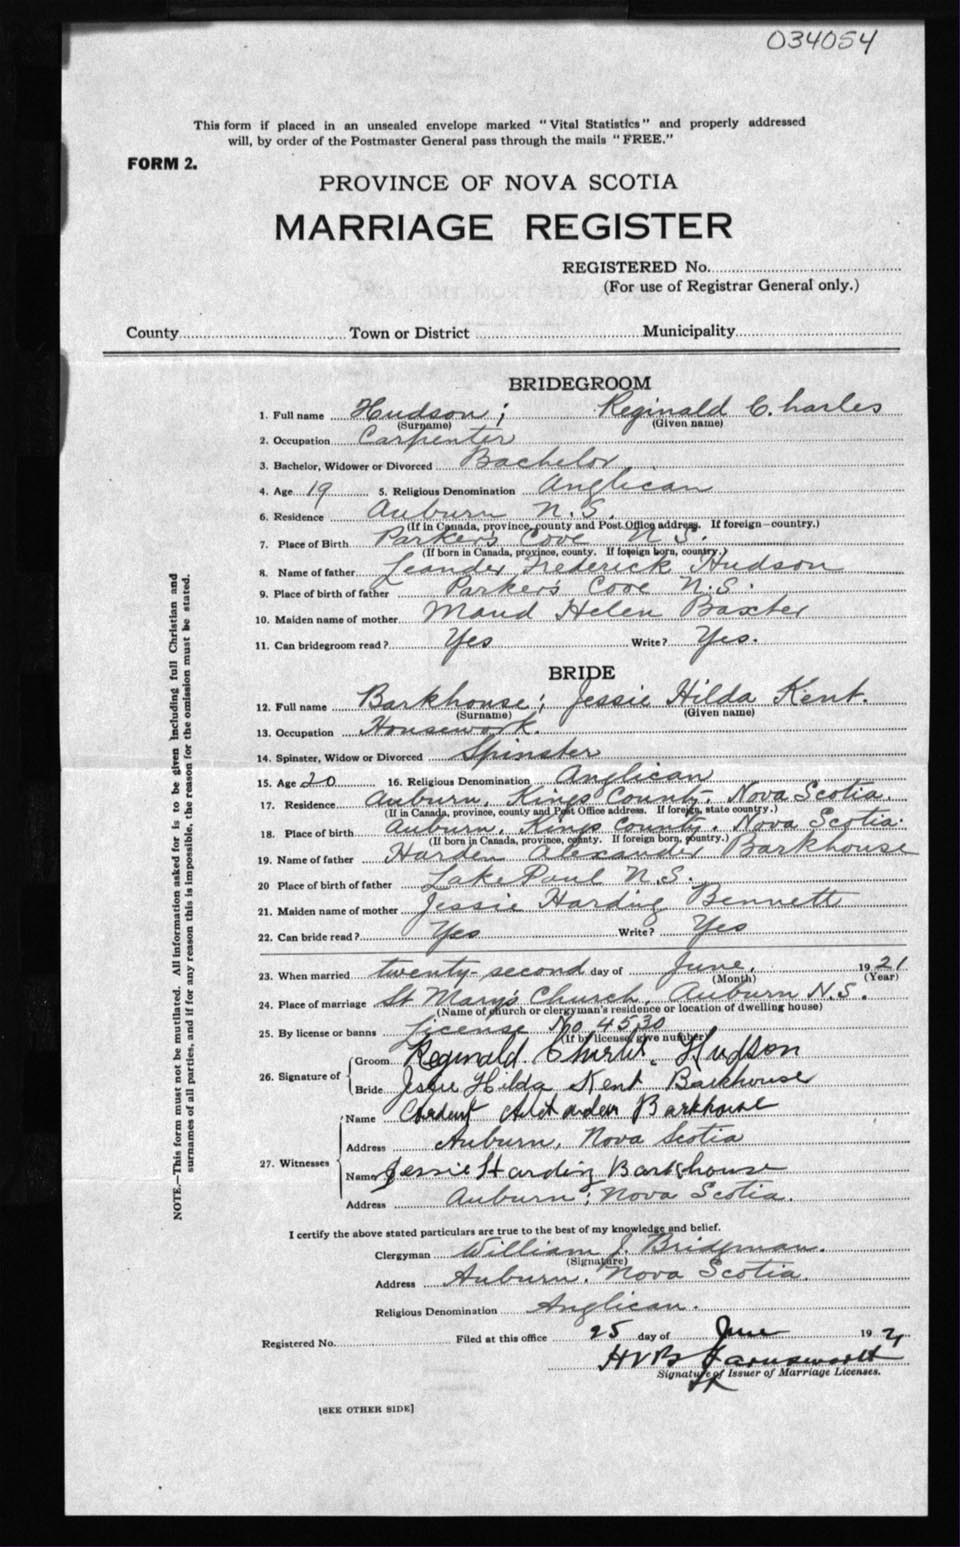 034054
This form if placed in an unsealed envelope marked "Vital Statistics" and properly addressed
will, by order of the Postmaster General pass through the mails "FREE."
FORM 2.
PROVINCE OF NOVA SCOTIA
MARRIAGE REGISTER
REGISTERED No.
(For use of Registrar General only.)
County Town or District Municipality
BRIDEGROOM
1. Full name Hudson; Reginald Charles
(Surname) (Given name)
2. Occupation Carpenter
3. Bachelor, Widower or Divorced Bachelor
4. Age 19 5. Religious Denomination Anglican
6. Residence Auburn N.S.
(If in Canada, province, county and Post Office address. If foreign—country.)
7. Place of Birth Parker's Cove N.S.
(If born in Canada, province, county. If foreign born, country.)
8. Name of father Leander Frederick Hudson
9. Place of birth of father Parker's Cove N.S.
10. Maiden name of mother Maud Helen Baxter
11. Can bridegroom read? Yes Write? Yes.
BRIDE
12. Full name Barkhouse; Jessie Hilda Kent.
(Surname) (Given name)
13. Occupation Housework.
14. Spinster, Widow or Divorced Spinster
15. Age 20 16. Religious Denomination Anglican
17. Residence Auburn, Kings County, Nova Scotia
(If in Canada, province, county and Post Office address. If foreign, state country.)
18. Place of birth Auburn, Kings County, Nova Scotia.
(If born in Canada, province, county. If foreign born, country.)
19. Name of father Harden Alexander Barkhouse
20 Place of birth of father Lake Paul N.S.
21. Maiden name of mother Jessie Harding Bennett
22. Can bride read? Yes Write? Yes
23. When married twenty-second day of June, 1921
(Month) (Year)
24. Place of marriage St Mary's Church, Auburn N.S.
(Name of church or clergyman's residence or location of dwelling house)
25. By license or banns License No 4530
(If by license, give number)
26. Signature of
Groom Reginald Hudson
Bride Jessie Hilda Kent Barkhouse
27. Witnesses
Name Barkhouse
Address Auburn, Nova Scotia
Name Jessie Harding Barkhouse
Address Auburn, Nova Scotia.
I certify the above stated particulars are true to the best of my knowledge and belief.
Clergyman William J. Bridgman.
(Signature)
Address Auburn. Nova Scotia.
Religious Denomination Anglican.
Registered No. Filed at this office 25 day of June 1921
Farnsworth
Signature of Issuer of Marriage Licenses.
[SEE OTHER SIDE]
NOTE.—This form must not be mutilated. All information asked for is to be given including full Christian and
surnames of all parties, and if for any reason this is impossible, the reason for the omission must be stated.